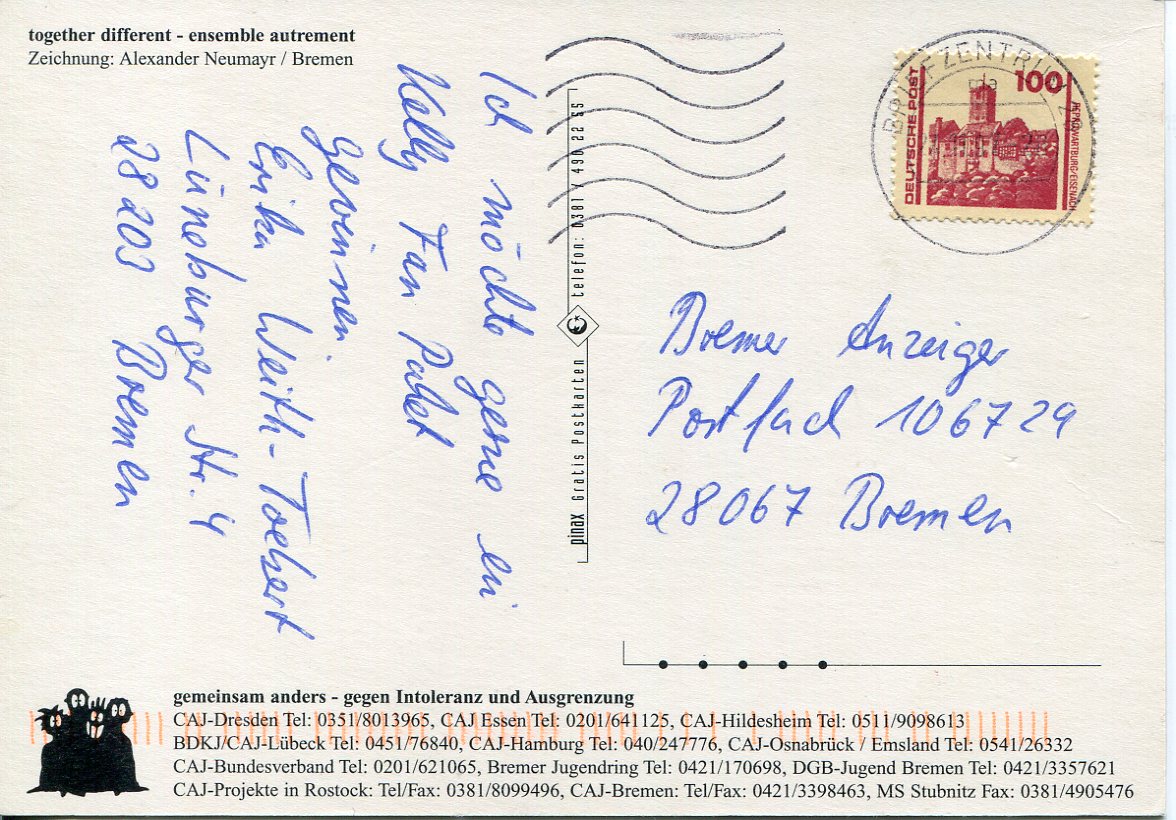 together different - ensemble autrement
Zeichnung: Alexander Neumayr / Bremen
Ich möchte gerne ein
Kelly Fan Paket
gewinnen
Erika Weith-
Lüneburger Str. 4
28203 Bremen
pinax Gratis Postkarten telefon: 0381 / 490 22 55
BRIEFZENTRUM
DEUTSCHE POST
100
WARTBURG/EISENACH
Bremer Anzeiger
Postfach 106729
28067 Bremen
gemeinsam anders - gegen Intoleranz und Ausgrenzung
CAJ-Dresden Tel: 0351/8013965, CAJ Essen Tel: 0201/641125, CAJ-Hildesheim Tel: 0511/9098613
BDKJ/CAJ-Lübeck Tel: 0451/76840, CAJ-Hamburg Tel: 040/247776, CAJ-Osnabrück / Emsland Tel: 0541/26332
CAJ-Bundesverband Tel: 0201/621065, Bremer Jugendring Tel: 0421/170698, DGB-Jugend Bremen Tel: 0421/3357621
CAJ-Projekte in Rostock: Tel/Fax: 0381/8099496, CAJ-Bremen: Tel/Fax: 0421/3398463, MS Stubnitz Fax: 0381/4905476